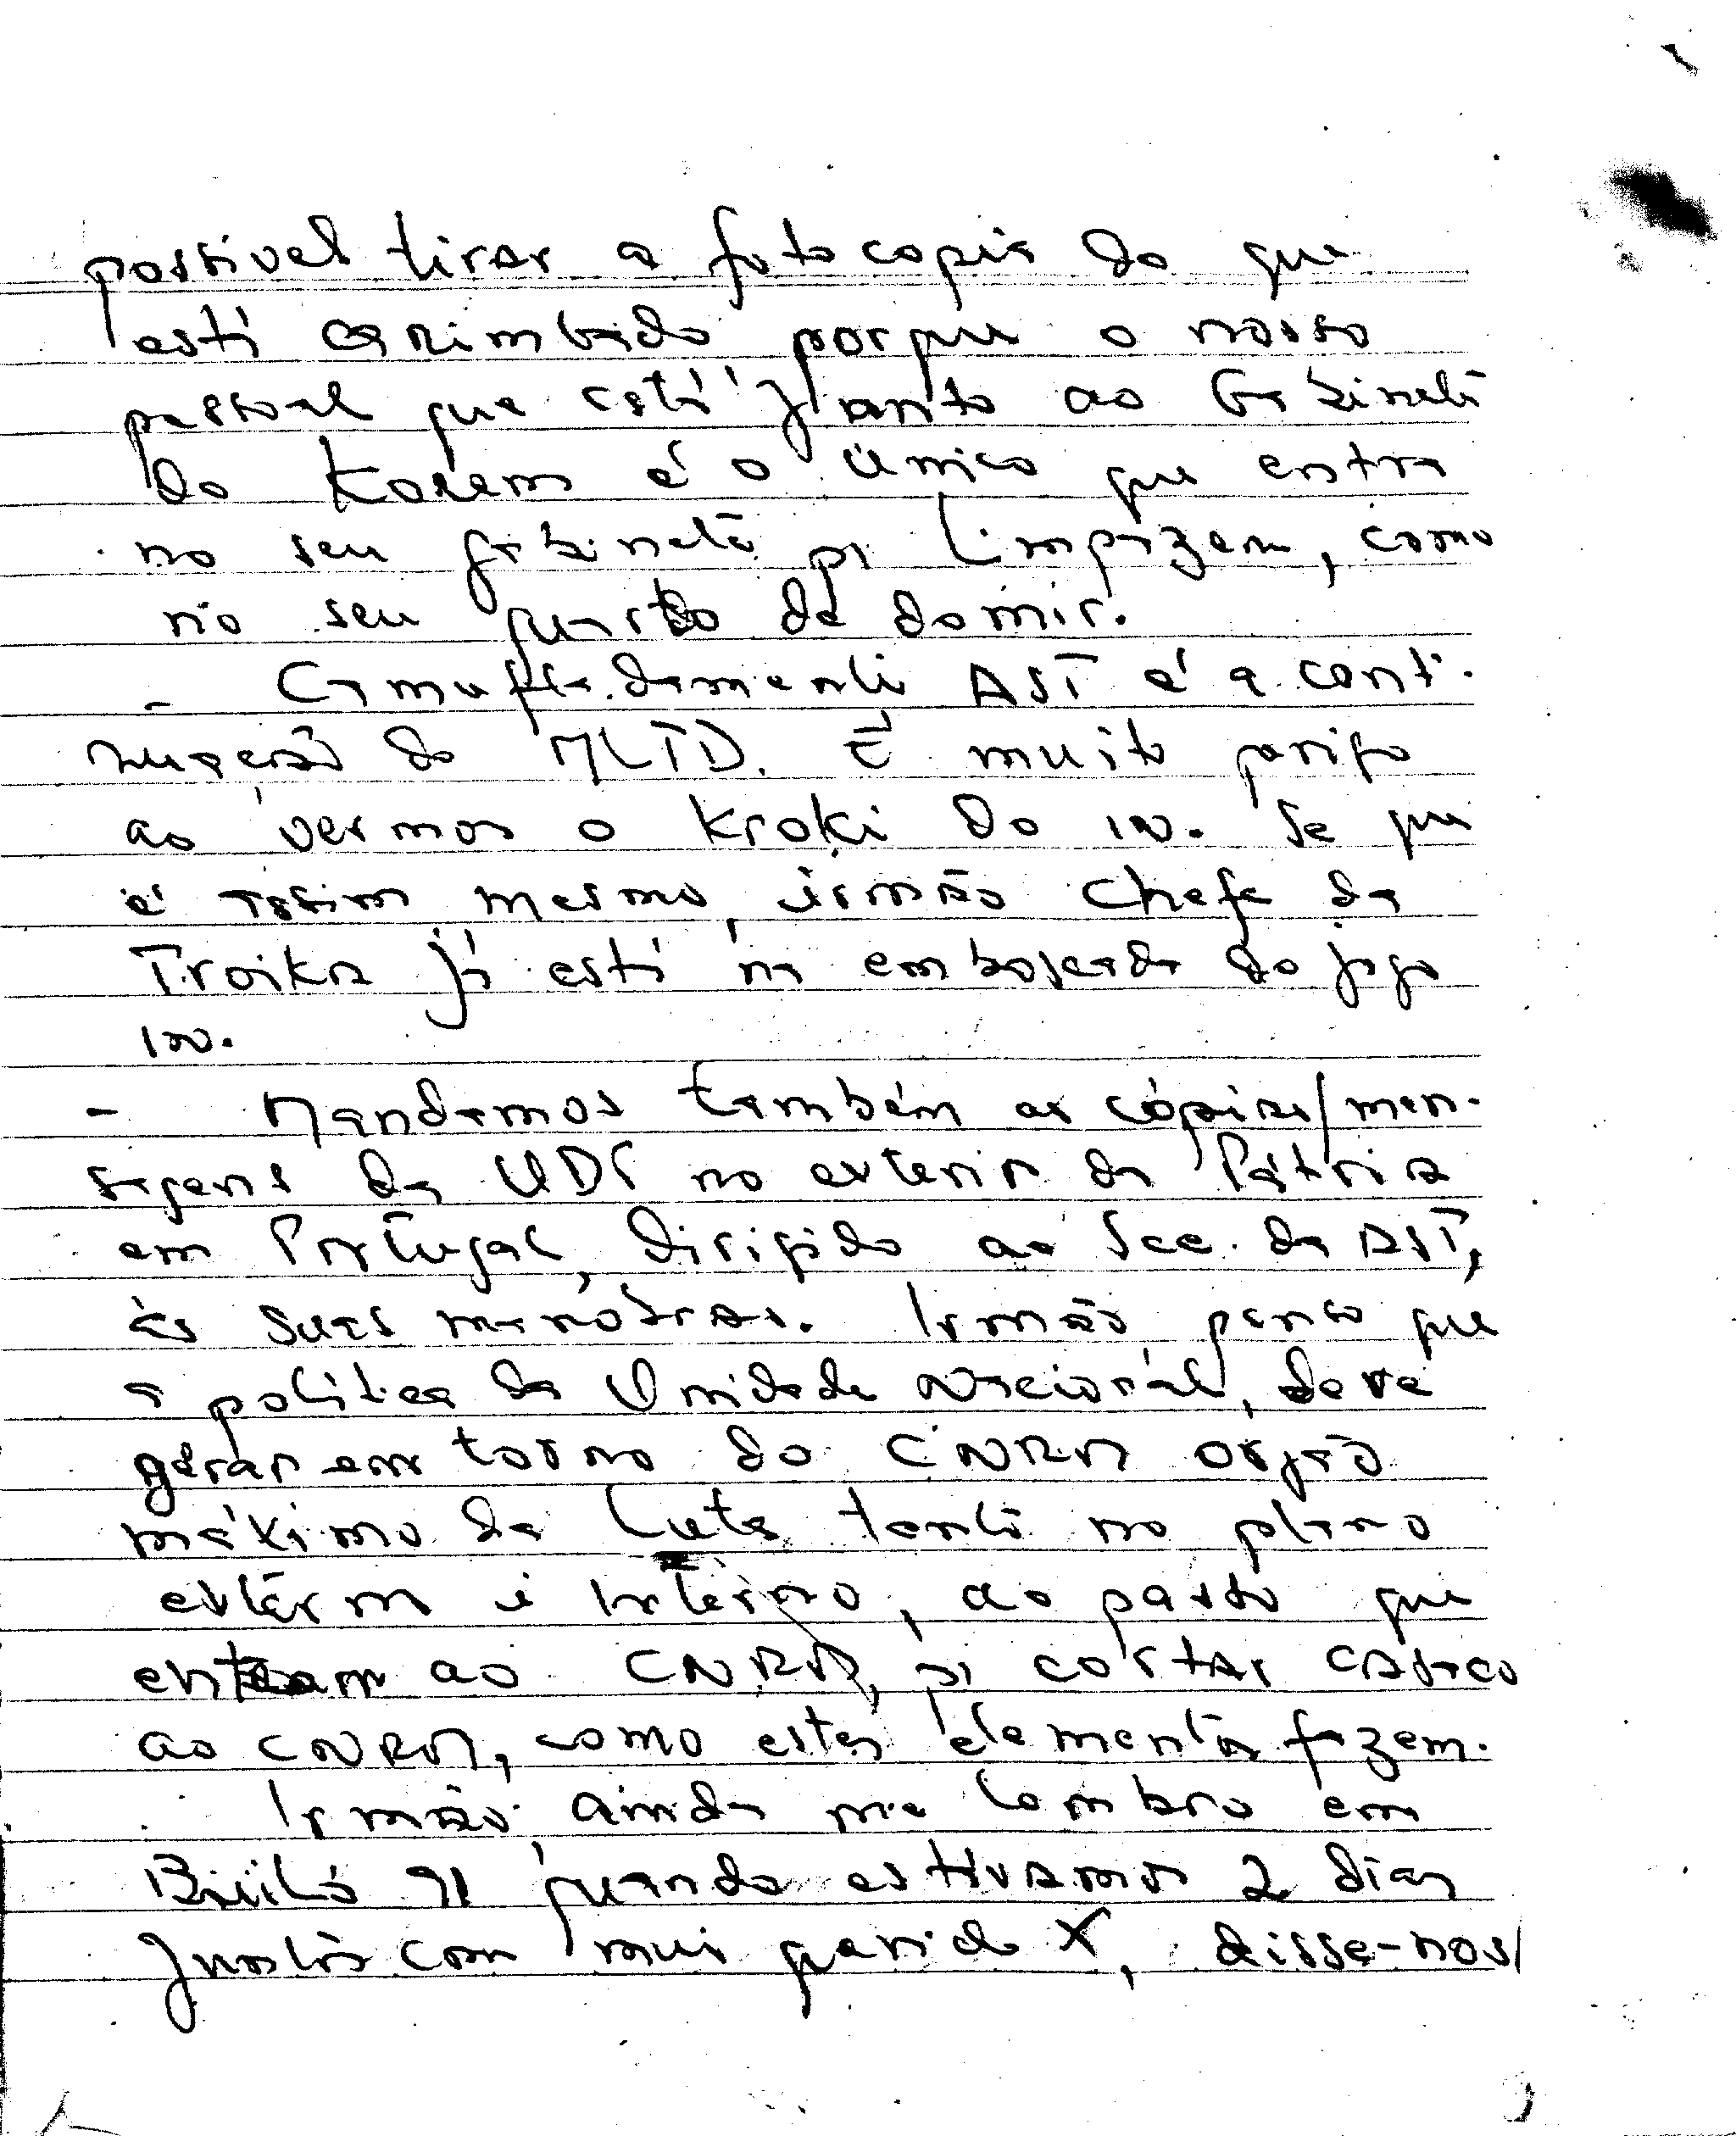 possivel tirar a fotocopia do que
está carimbado porque o nosso
pessoal que está junto ao Gabinete
do Korem é o único que entra
no seu gabinete p/ limpezem, como
no seu quarto de domir.
- Camufladamente AST é a conti-
nuação do MLTD. É muito perigo
ao vermos o Kroki do IN. Se que
é assim mesmo, irmão chefe da
Troika já está na emboscada do jogo
IN.
- Mandamos também as cópias/men-
sagens da UDT no exterior da Pátria
em Portugal, dirigido ao Sec. da AST,
às suas manobras. Irmão penso que
a politica da Unidade Nacional, deve
gerar em torno do CNRM orgão
máximo da Luta tanto no plano
externo é interno, ao passo que
entram ao CNRM, p/ cortar
ao CNRM, como estes elementos fazem.
Irmão, ainda me lembro em
91 quando estivamos 2 dias
juntos com mui querido X, disse-nos/